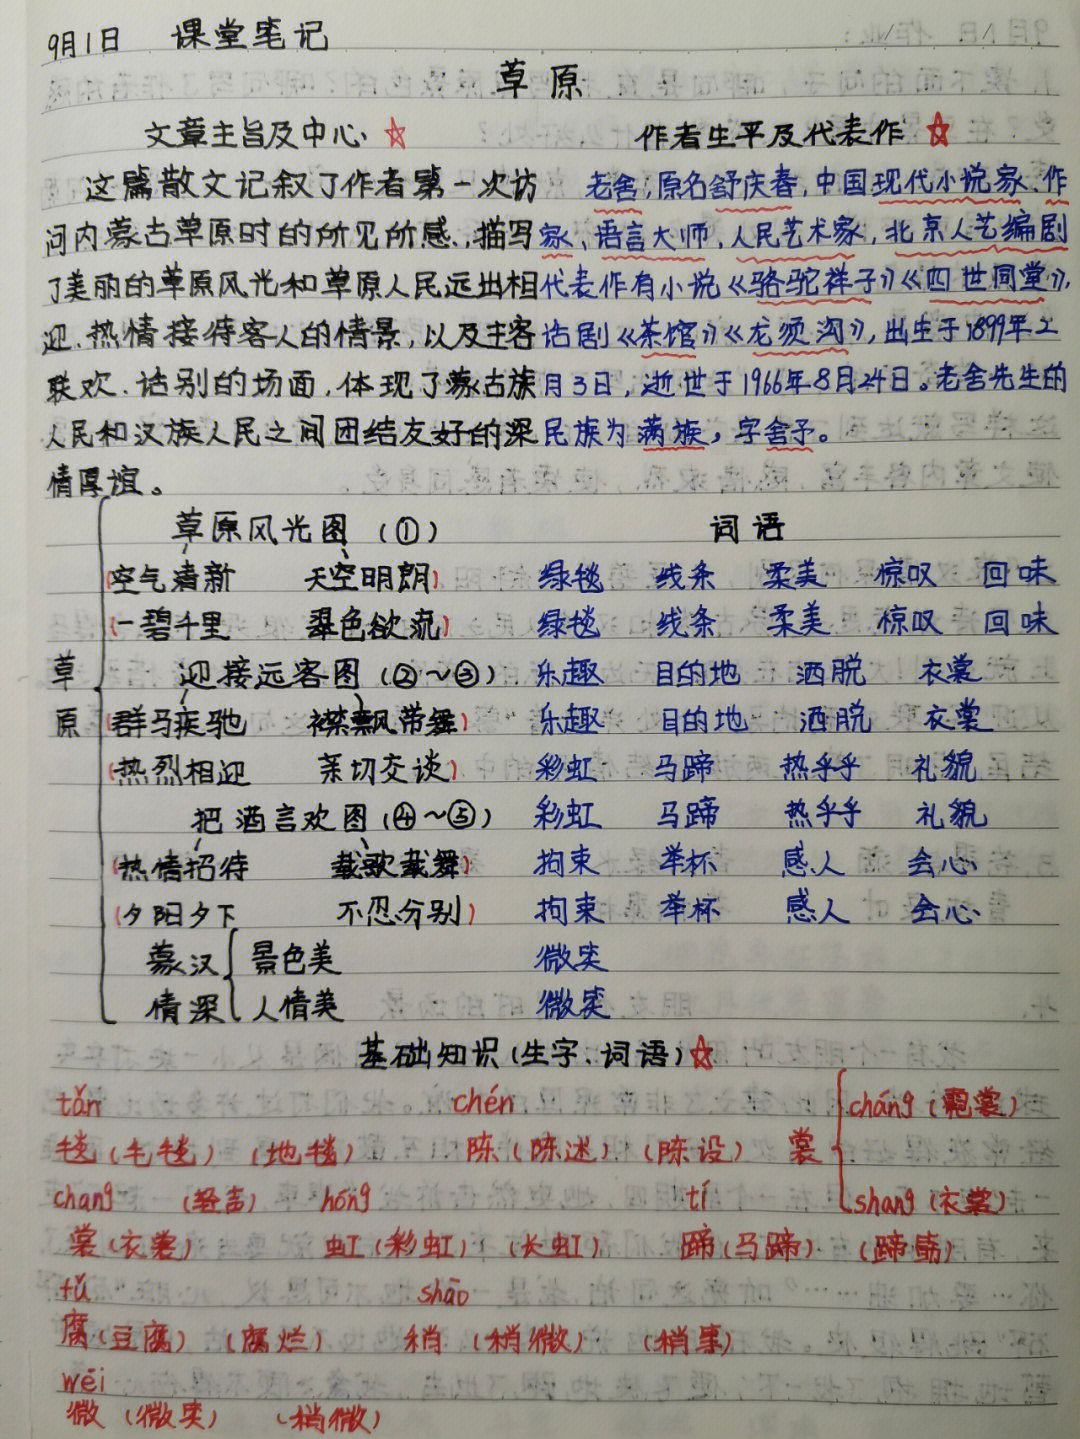 9月1日 课堂笔记
草原
文章主旨及中心
这篇散文记叙了作者第一次访
问内蒙古草原时的所见所感,描写
了美丽的草原风光和草原人民远出相
迎、热情接待客人的情景,以及主客
联欢、话别的场面,体现了蒙古族
人民和汉族人民之间团结友好的深
情厚谊。
作者生平及代表作
老舍,原名舒庆春,中国现代小说家、作
家,语言大师,人民艺术家,北京人艺编剧
代表作有小说《骆驼祥子》《四世同堂》,
话剧《茶馆》《龙须沟》,出生于1899年2
月3日,逝世于1966年8月24日。老舍先生的
民族为满族,字舍予。
草原
草原风光图(①)
(空气清新 天空明朗)
(一碧千里 翠色欲流)
迎接远客图(②~③)
(群马疾驰 襟飘带舞)
(热烈相迎 亲切交谈)
把酒言欢图(④~⑤)
(热情招待 载歌载舞)
(夕阳夕下 不忍分别)
蒙汉情深
景色美
人情美
词语
绿毯 线条 柔美 惊叹 回味
绿毯 线条 柔美 惊叹 回味
乐趣 目的地 洒脱 衣裳
乐趣 目的地 洒脱 衣裳
彩虹 马蹄 热乎乎 礼貌
彩虹 马蹄 热乎乎 礼貌
拘束 举杯 感人 会心
拘束 举杯 感人 会心
微笑
微笑
基础知识(生字、词语)
tǎn chén
毯(毛毯)(地毯) 陈(陈述)(陈设)
裳
cháng(霓裳)
shang(衣裳)
chang (轻声) hóng tí
裳(衣裳) 虹(彩虹)(长虹) 蹄(马蹄)(蹄筋)
fǔ shāo
腐(豆腐)(腐烂) 稍(稍微)(稍事)
wēi
微(微笑)(稍微)